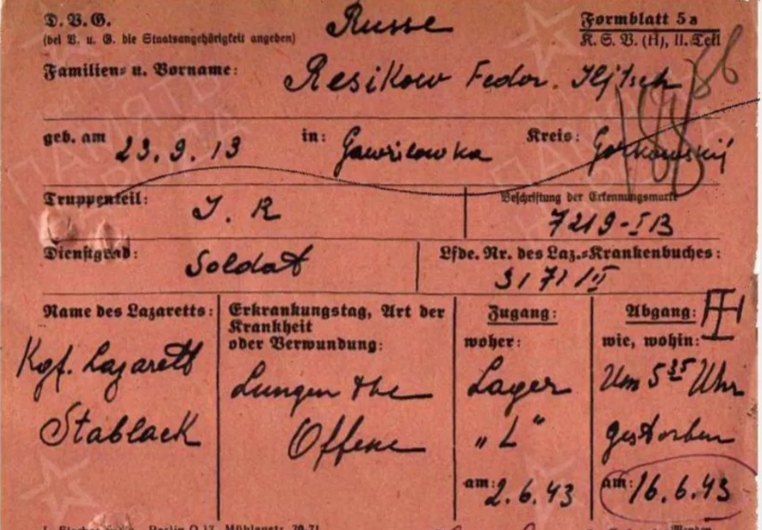 D. V. G. Russe Formblatt 5a
(bei V. u. G. die Staatsangehörigkeit angeben) K. S. V. (H), II. Teil
Familien- u. Vorname: Resikow Fedor. Iljitsch
geb. am 23.9.13 in: Gawrilowka Kreis: Gorkowskij
Truppenteil: J. R Beschriftung der Erkennungsmarke
7219-IB
Dienstgrad: Soldat Lfde. Nr. des Laz.-Krankenbuches:
3171/II
Name des Lazaretts: Erkrankungstag, Art der Krankheit oder Verwundung: Zugang: woher: Abgang: wie, wohin:
Kgf. Lazarett Lungen tbc Lager Um 5 35 Uhr
Stablack Offene „L" gestorben
am: 2.6.43 am: 16.6.43
ПАМЯТЬ
НАРОДА